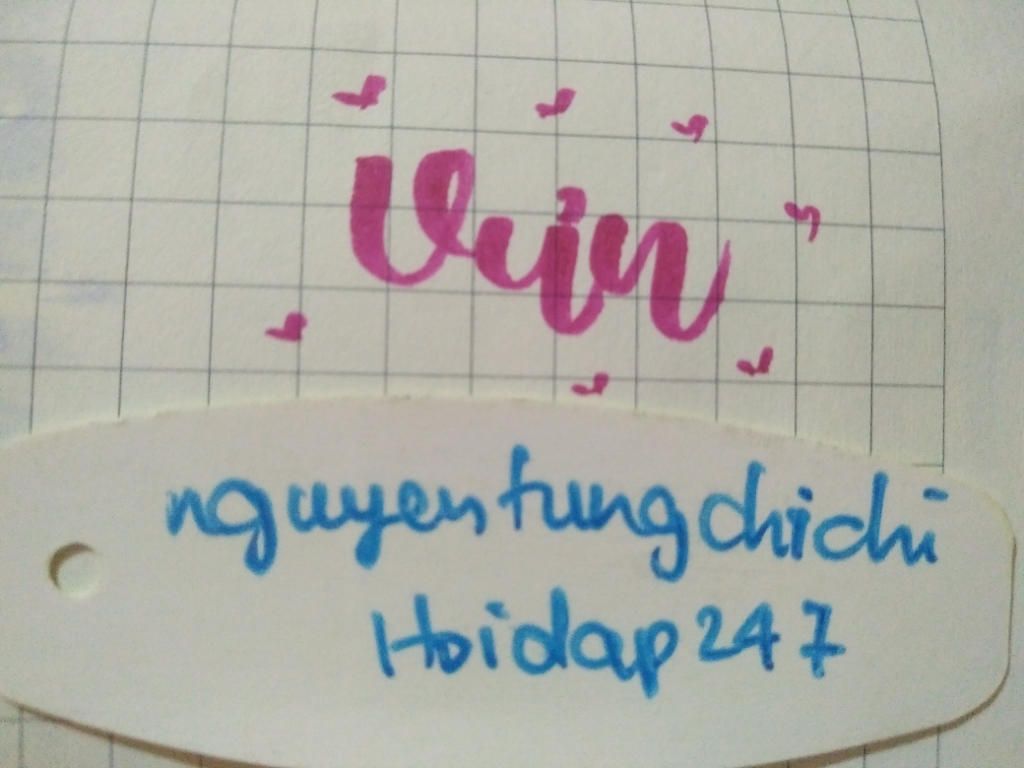 Vün
nguyentungchichi
Hoidap247